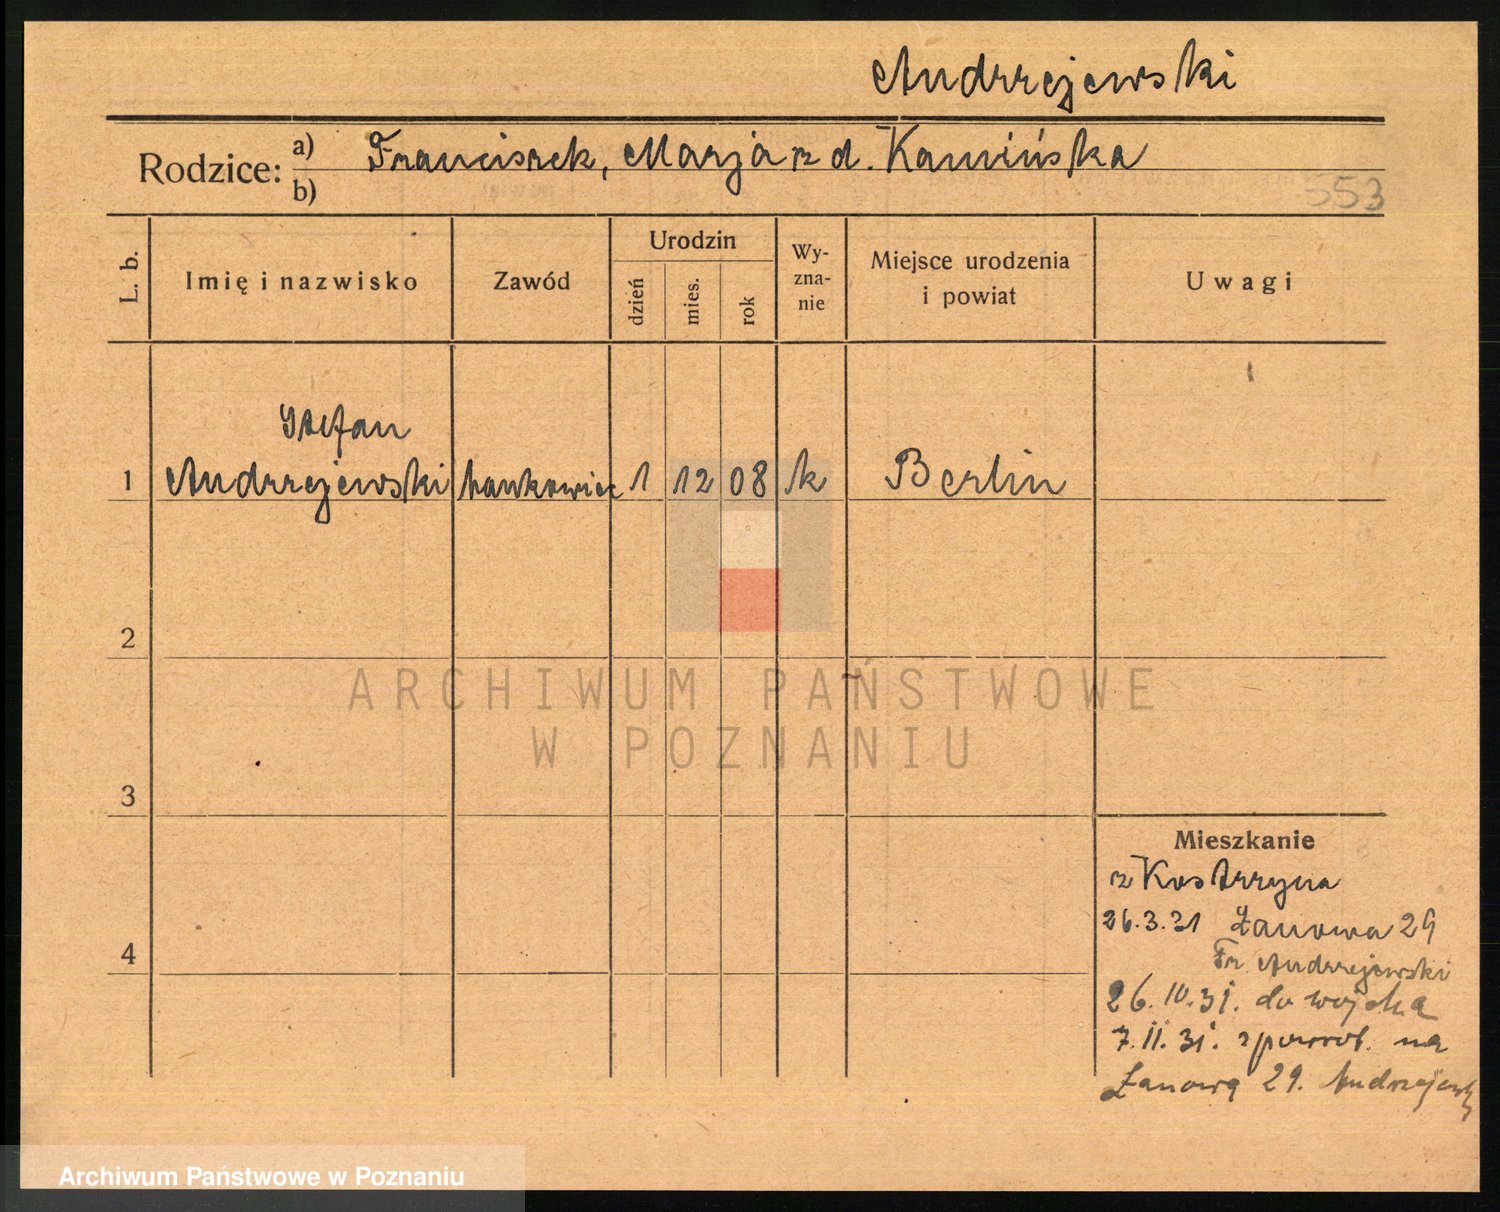 Andrzejewski
Rodzice: a) Franciszek, Marja z d. Kamińska
b)
553
L. b. Imię i nazwisko Zawód Urodzin dzień mies. rok Wy-zna-nie Miejsce urodzenia i powiat Uwagi
Stefan
1 Andrzejewski bankowiec 1 12 08 k Berlin
2
3
4
Mieszkanie
z Kostrzyna
26.3.31 Łanowa 29
Fr. Andrzejewski
26.10.31. do wojska
7.11.31. zpowrot. na
Łanową 29. Andrzejewski
ARCHIWUM PAŃSTWOWE
W POZNANIU
Archiwum Państwowe w Poznaniu